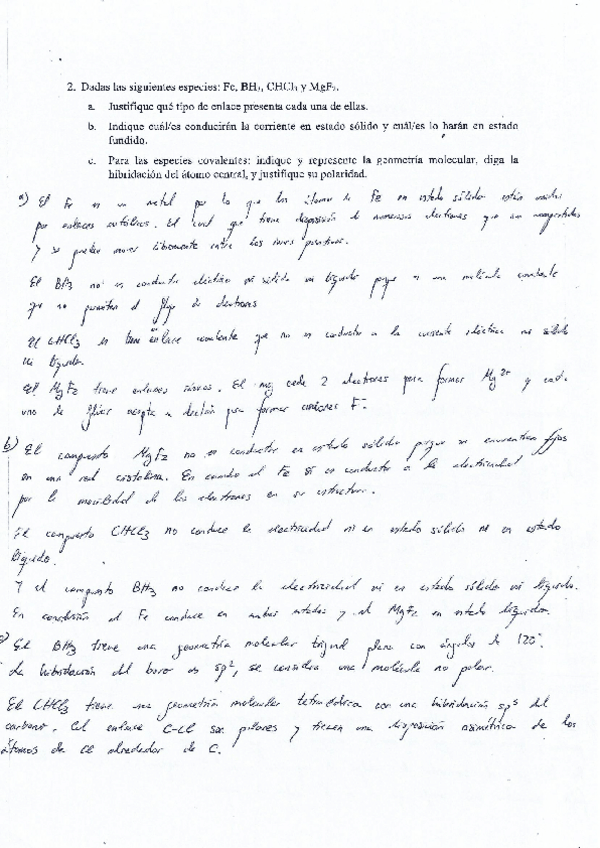 2. Dadas las siguientes especies: Fe, BH₃, CHCl₃ y MgF₂.
a. Justifique qué tipo de enlace presenta cada una de ellas.
b. Indique cuál/es conducirán la corriente en estado sólido y cuál/es lo harán en estado
fundido.
c. Para las especies covalentes: indique y represente la geometría molecular, diga la
hibridación del átomo central, y justifique su polaridad.
a) El Fe es un metal por lo que los átomos de Fe en estado sólido están unidos
por enlaces metálicos. El cual que tiene disposición de numerosos electrones que son compartidos
y se pueden mover libremente entre los iones positivos.
El BH3 no es conductor eléctrico ni sólido ni líquido porque es una molécula covalente
que no permiten el flujo de electrones
El CHCl3 tiene enlace covalente que no es conductor a la corriente eléctrica ni sólido
ni líquido.
El MgF2 tiene enlaces iónicos. El mg cede 2 electrones para formar Mg2+ y cada
uno de flúor acepta electrón para formar F-.
b) El compuesto MgF2 no es conductor en estado sólido porque se encuentran fijos
en una red cristalina. En cambio el Fe si es conductor a la electricidad
por la movilidad de los electrones en su estructura.
El compuesto CHCl3 no conduce la electricidad ni en estado sólido ni en estado
líquido.
Y el compuesto BH3 no conduce la electricidad ni en estado sólido ni líquido.
En conclusión el Fe conduce en ambos estados y el MgF2 en estado líquido.
El BH3 tiene una geometría molecular trigonal plana con ángulos de 120°.
La hibridación del boro es sp2, se considera una molécula no polar.
El CHCl3 tiene una geometría molecular tetraédrica con una hibridación sp3 del
carbono. El enlace C-Cl son polares y tienen una disposición asimétrica de los
átomos de Cl alrededor de C.